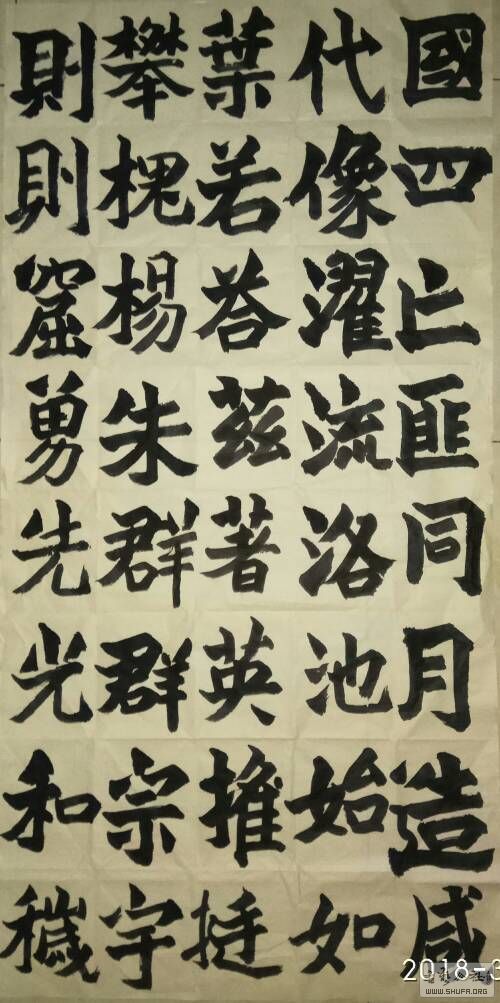 國四亡匪同月造咸
代像濯流洛池始如
葉若荅茲著英摧挺
攀槐楊朱群群宗宇
則則窟勇先光和穢
2018-3
WWW.SHUFA.ORG